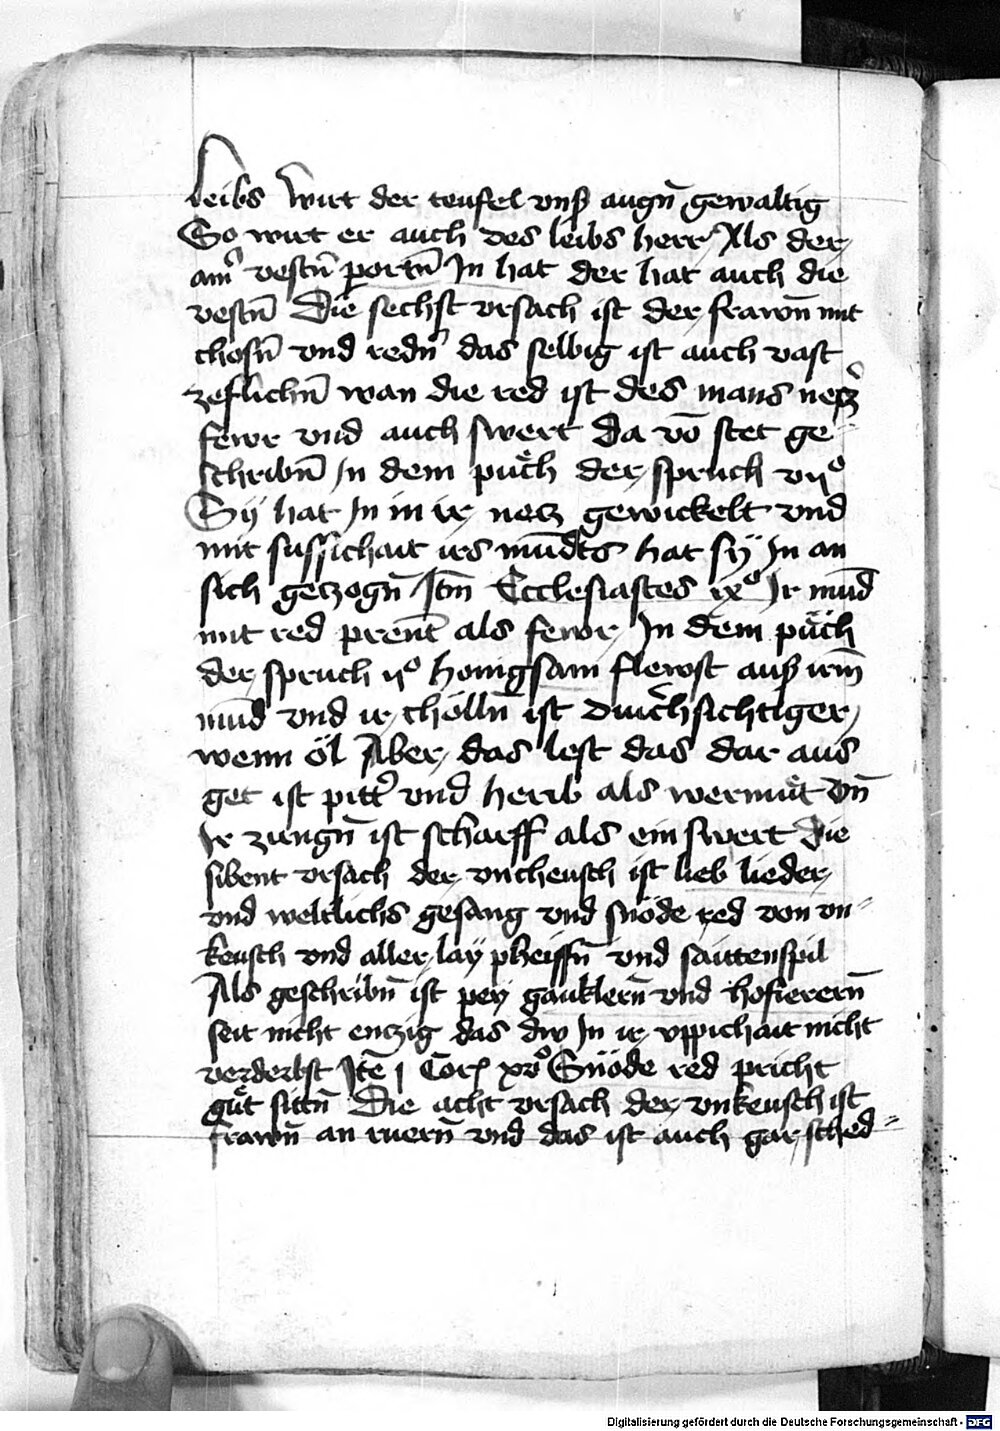 leibs wirt der teufel vnsß augn̄ gewaltig
So wirt er auch des leibs herr Als der
am̉ vestn̄ portn̄ In hat der hat auch die
vestn̄ Die sechst vrsach ist der frawn̄ mit
chosn̄ vnd redn̄ das selbig ist auch vast
wan die red ist des mans netz
fewr vnd auch swert Da vō stet ge⸗
schribn̄ In dem puͤch der spruch vijº
Sÿ hat In in ir netz gewickelt vnd
mit sussichait irs mūdts hat sÿ In an
sich getzogn̄ Itm̄ Ecclesiastes ixº Ir mūd
mit red prent̄ als fewr In dem puͤch
der spruch ijº honigsam flewst auß irm̄
mūd vnd ir chölln̄ ist durchsichtiger
wenn öl Aber das lest das dar aus
get ist pitt̉ vnd herib als wermuͤt vn̄
Ir zungn̄ ist scharff als ein swert Die
sibent vrsach der vncheusch ist lieb lieder
vnd weltlichs gesang vnd snöde red von vn⸗
keusch vnd aller lay pheiffn̄ vnd saittenspil
Als geschribn̄ ist peÿ gauklern̄ vnd hofierern̄
seit nicht entzig das dw In ir vppichait nicht
verderbst Itē j Cor xvº Snöde red pricht
guͤt sittn̄ Die acht vrsach der vnkeusch ist
frawn̄ an ruern̄ vnd das ist auch gar sched⸗
Digitalisierung gefördert durch die Deutsche Forschungsgemeinschaft - DFG